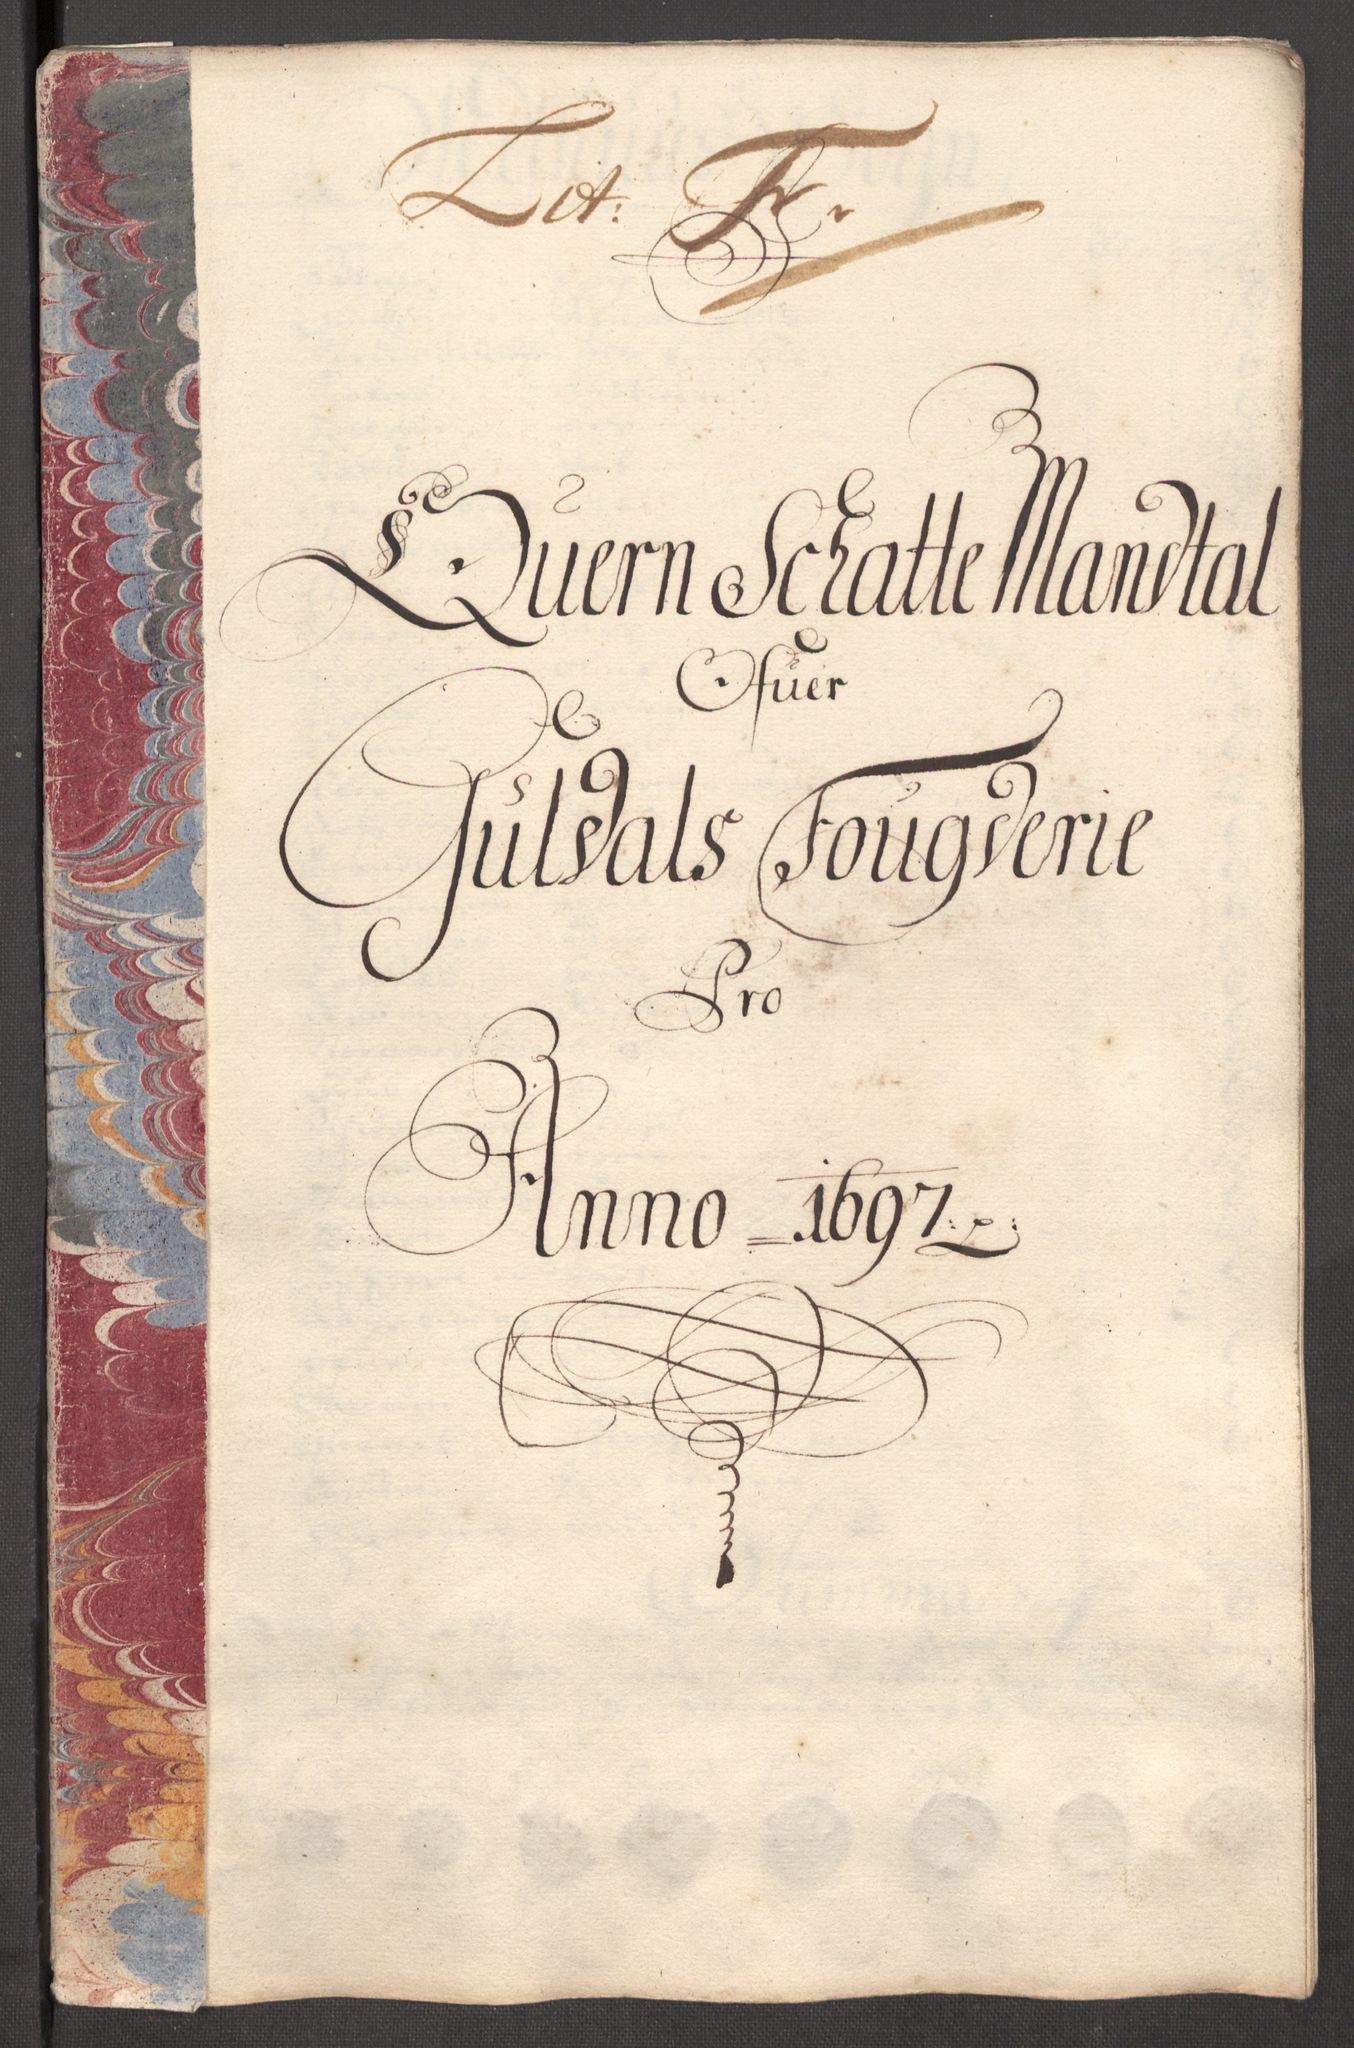 Lit: F.
Quern Schatte Mandtal
Ofuer
Guldals Fougderie
Pro
Anno 1697